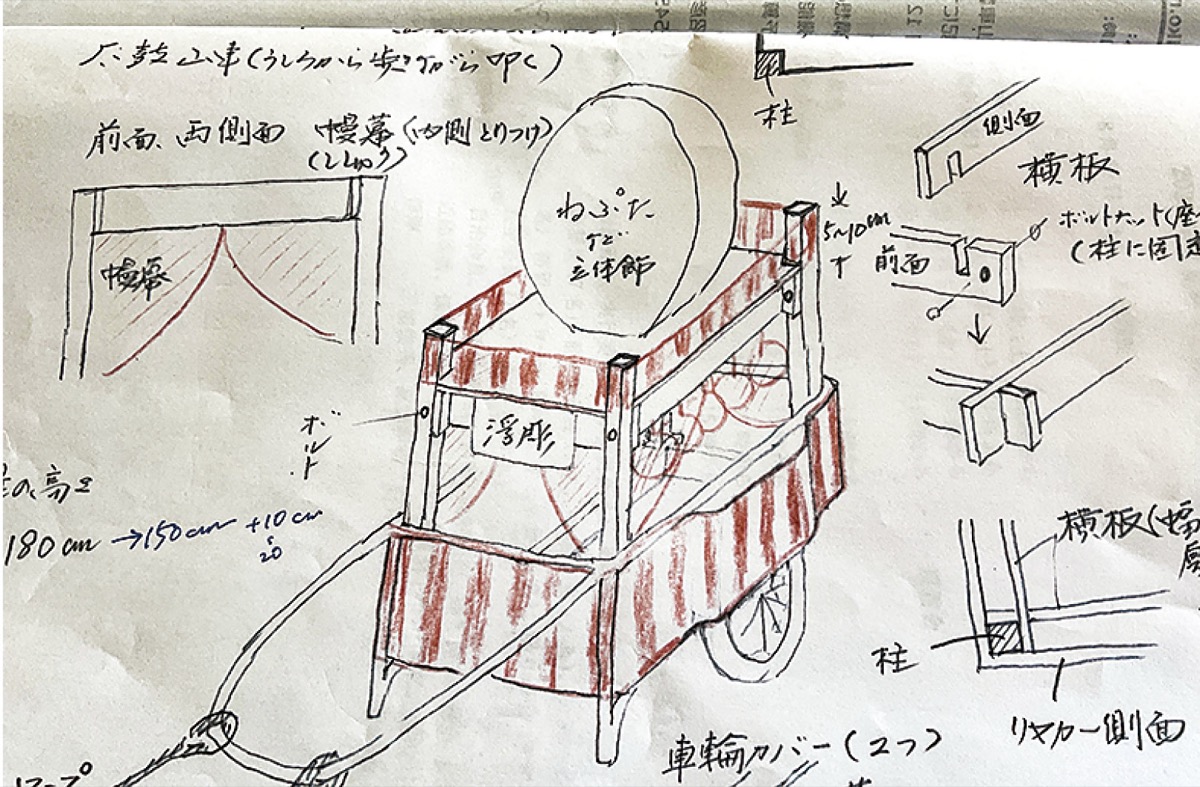 太鼓山車(うしろから歩きながら叩く)
前面、両側面 幔幕(内側とりつけ)
幔幕
ねぷた
など
立体飾
浮彫
ボルト
の高さ
180cm→150cm+10cm
20
5~10cm
柱
側面
横板
前面
ボルトナット(座
(柱に固定
横板(幔
柱
リヤカー側面
車輪カバー(2つ)
ロープ